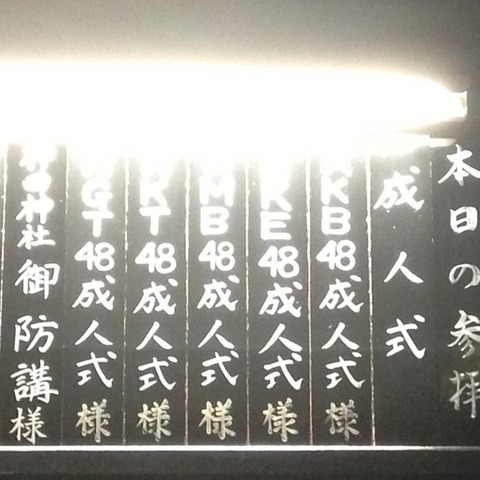 本日の参拝
成人式
KB48成人式様
KE48成人式様
MB48成人式様
KT48成人式様
GT48成人式様
神田神社御防講様